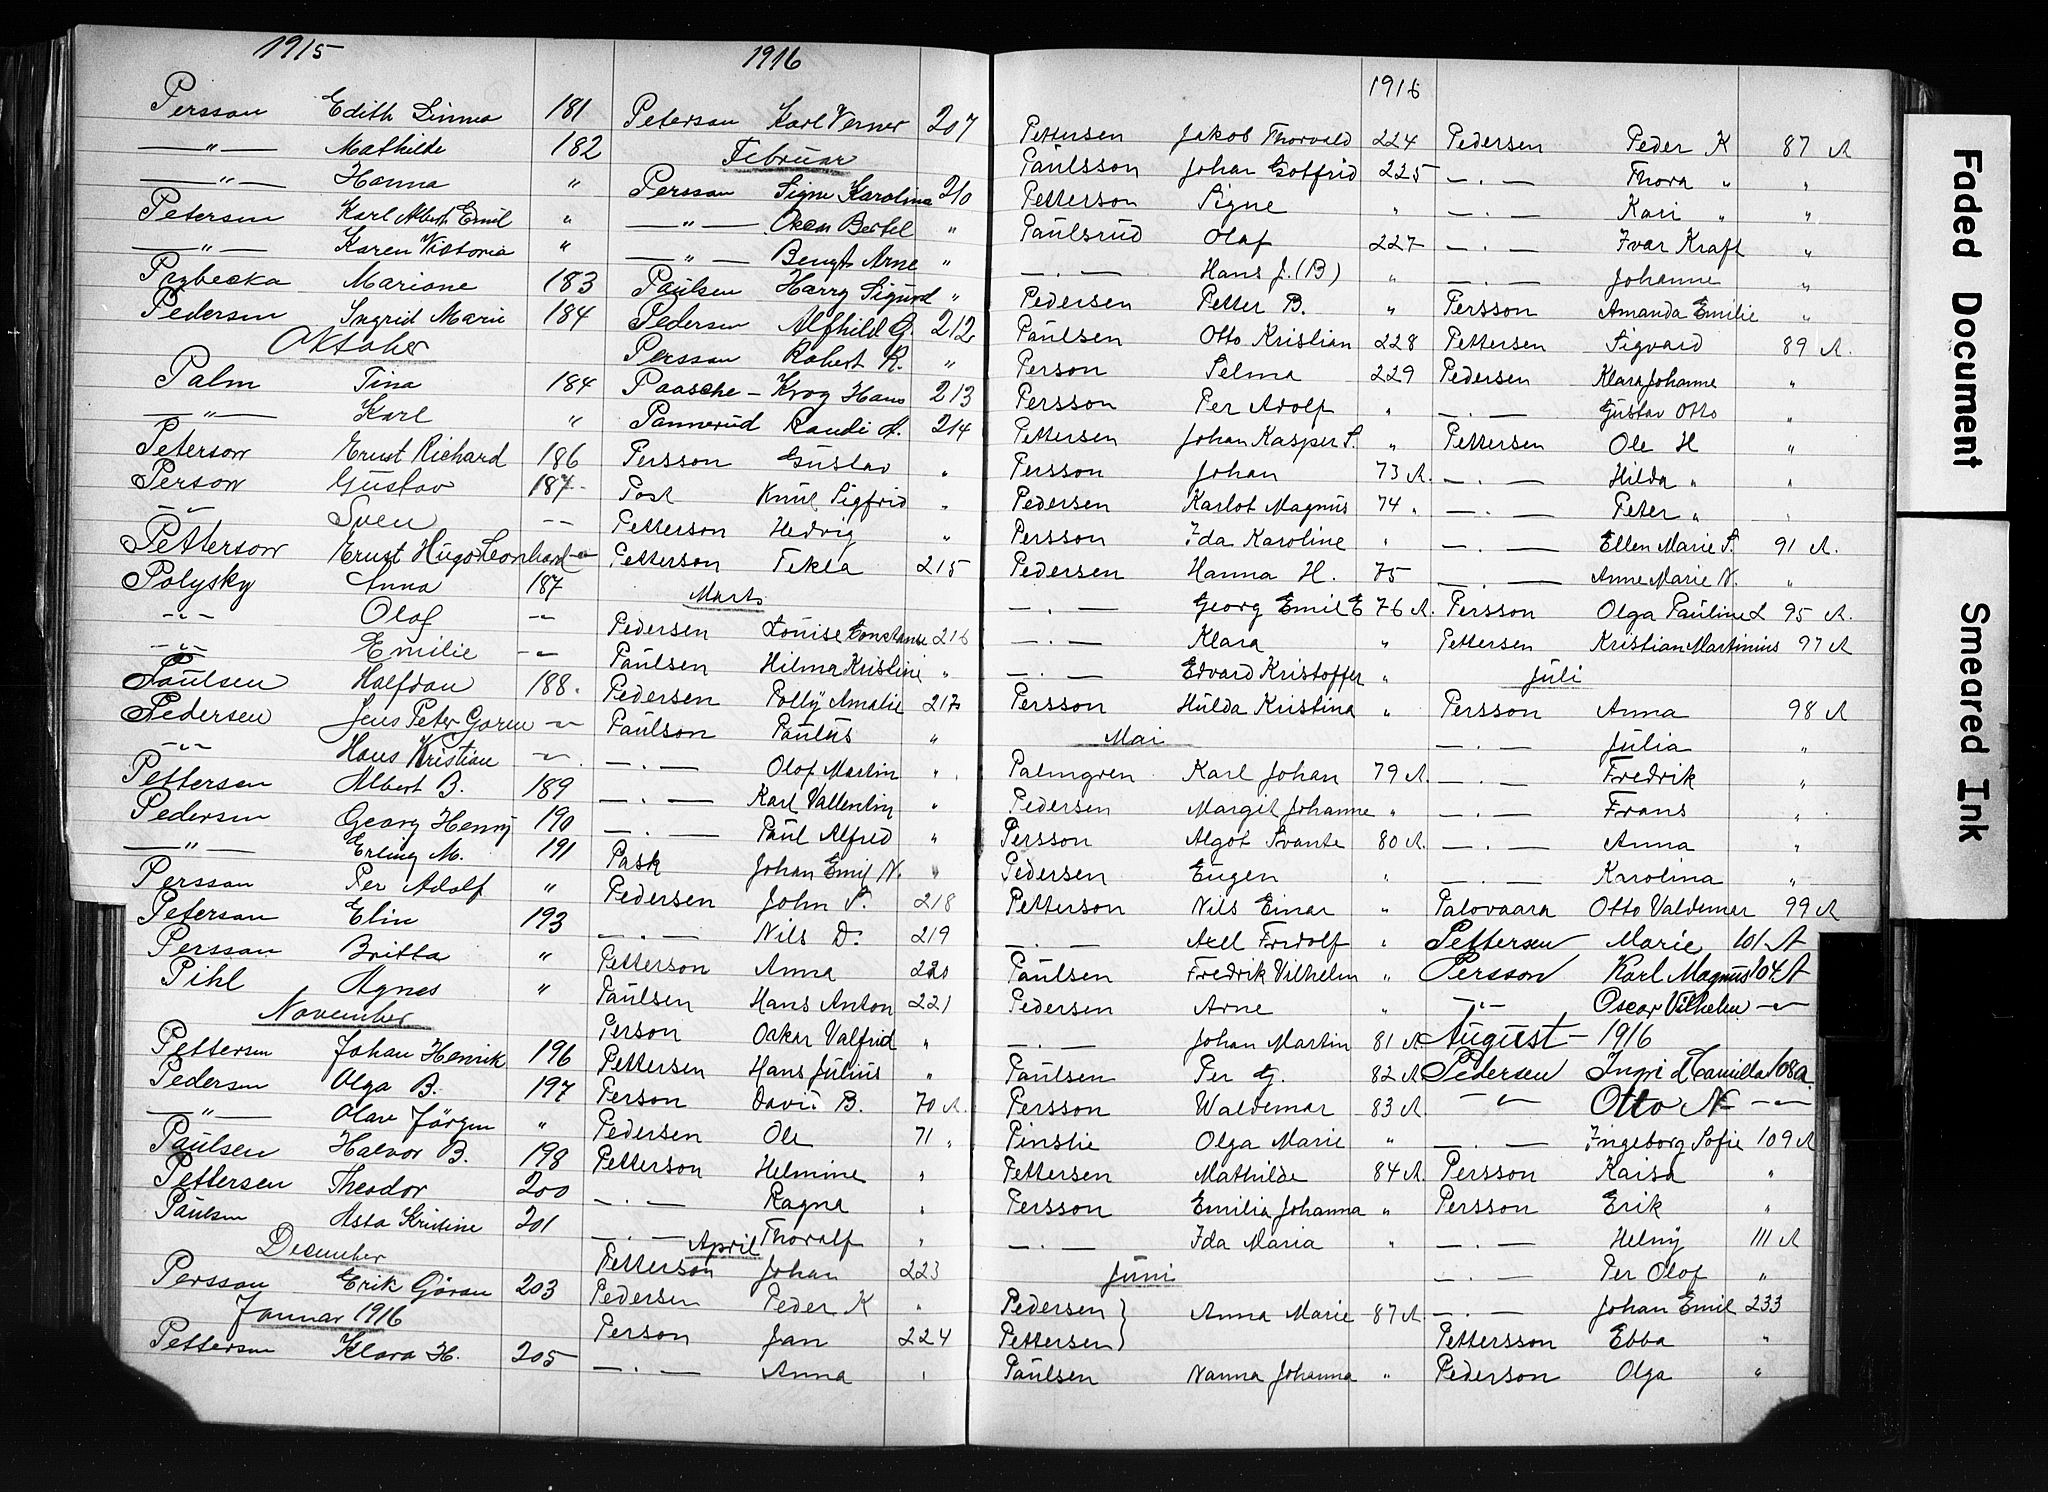 1915
Persson Edith Linnea 181
—"— Mathilde 182
—"— Hanna "
Petersen Karl Albert Emil "
—"— Karen Viktoria "
Prybecka Mariane 183
Pedersen Ingrid Marie 184
Oktober
Palm Tina 184
—"— Karl "
Peterson Ernst Richard 186
Person Gustav 187.
-"- Sven -"-
Petterson Ernst Hugo Leonhard -"-
Polysky Anna 187
-"- Olof -"-
-"- Emilie -"-
Paulsen Halfdan 188.
Pedersen Jens Peter Goren -"-
-"- Hans Kristian -"-
Pettersen Albert B. 189
Pedersen Georg Henry 190
—"— Erling M. 191
Persson Per Adolf "
Peterson Elin 193
Persson Britta "
Pihl Agnes "
November
Pettersen Johan Henrik 196
Pedersen Olga B. 197
—"— Olav Jörgen "
Paulsen Halvor B. 198
Pettersen Theodor 200
Paulsen Asta Kristine 201
December
Persson Erik Göran 203
Januar 1916
Pettersen Klara H. 205
1916
Peterson Karl Verner 207
Februar
Persson Signe Karolina 210
—"— Oscar Bertel "
—"— Bengt Arne "
Paulsen Harry Sigurd "
Pedersen Alfhild G. 212
Persson Robert R. "
Paasche - Krog Hans 213
Pannerud Randi A. 214
Persson Gustav "
Post Knut Sigfrid "
Petterson Hedvig "
Petterson Tekla 215
Marts
Pedersen Louise Constanse 216
Paulsen Hilma Kristine "
Pedersen Polly Amalie 217
Paulson Paulus "
—.— Olof Martin "
—.— Karl Vallentin "
—.— Paul Alfred "
Pask Johan Emil N. "
Pedersen John S. 218
—.— Nils D. 219
Petterson Anna 220
Paulsen Hans Anton 221
Person Oskar Valfrid "
Pettersen Hans Julius "
Person David B. 70 A.
Pedersen Ole 71 "
Petterson Helmine "
—.— Ragna "
—.— Thoralf "
April
Petterson Johan 223
Pedersen Peder K "
Person Jan 224
—.— Anna "
1916
Pettersen Jakob Thorvald 224
Paulsson Johan Gotfrid 225
Petterson Signe "
Paulsrud Olaf 227
—.— Hans J. (B) "
Pedersen Petter B. "
Paulsen Otto Kristian 228
Person Selma 229
Persson Per Adolf "
Pettersen Johan Kasper S. "
Persson Johan 73 A.
Pedersen Karlot Magnus 74 "
Persson Ida Karoline "
Pedersen Hanna H. 75
—.— Georg Emil E 76 A.
—.— Klara "
—.— Edvard Kristoffer "
Persson Hulda Kristina "
Mai
Palmgren Karl Johan 79 A
Pedersen Marget Johanne "
Persson Algot Svante 80 A.
Pedersen Eugen "
Petterson Nils Einar "
—.— Axel Fridolf "
Paulsen Fredrik Vilhelm "
Pedersen Arne "
—.— Johan Martin 81 A
Paulsen Per G. 82 A
Persson Waldemar 83 A
Pinslie Olga Marie "
Pettersen Mathilde 84 A.
Persson Emilia Johanna "
—.— Ida Maria "
Juni
Pedersen } Anna Marie 87 A.
Pettersen }
Paulsen Nanna Johanna "
Pedersen Peder K 87 A
—.— Thora " "
—.— Kari " "
—.— Ivar Kraft "
—.— Johanne "
Persson Amanda Emilie "
Pettersen Sigvard 89 A.
Pedersen Klara Johanne "
—.— Gustav Otto "
Pettersen Ole H "
—.— Hilda " "
—.— Peter " "
—.— Ellen Marie S. 91 A.
—.— Anne Marie N. "
Persson Olga Pauline L 95 A.
Pettersen Kristian Martinius 97 A
Juli
Persson Anna 98 A
—.— Julia "
—.— Fredrik "
—.— Frans "
—.— Anna "
—.— Karolina "
Palovaara Otto Valdemar 99 A
Pettersen Marie 101 A
Persson Karl Magnus 104 A
-"- Oscar Vilhelm -"-
August - 1916
Pedersen Ingrid Camilla 108 a.
-"- Otto N -"-
—.— Ingeborg Sofie 109 A
Persson Kaisa "
Persson Erik "
—.— Helny 111 A
—.— Per Olof "
—.— Johan Emil 233
Pettersson Ebba "
Pederson Olga "
Faded Document
Smeared Ink